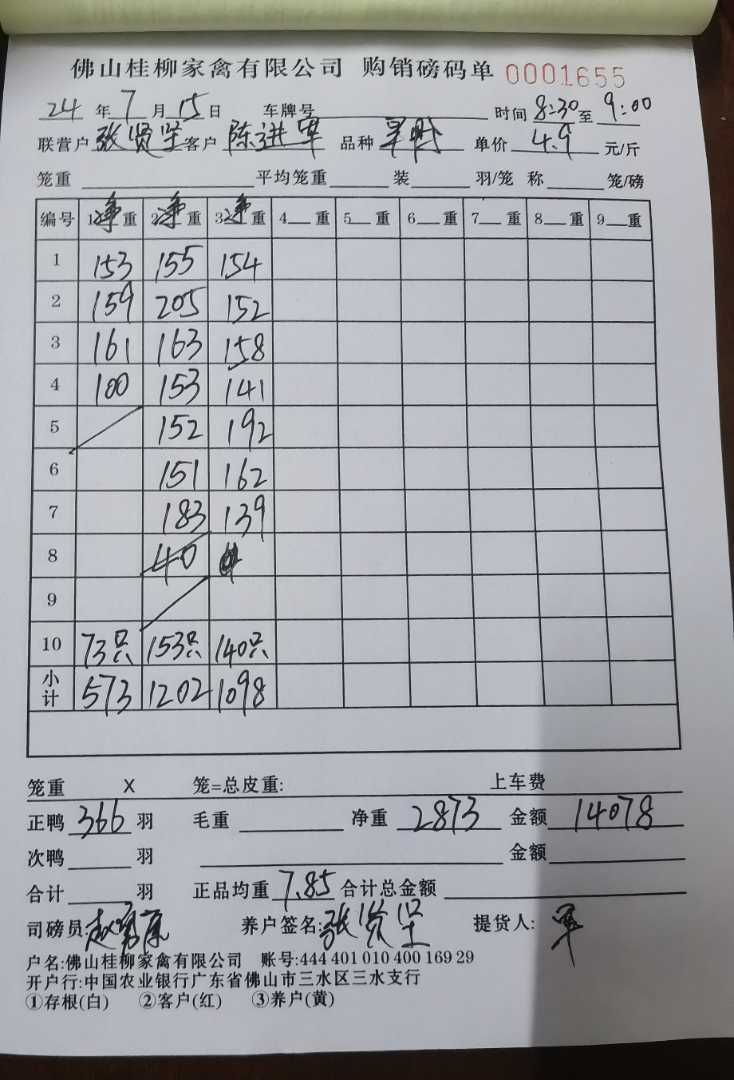 佛山桂柳家禽有限公司 购销磅码单 0001655
24 年 7 月 15 日 车牌号 时间 8:30 至 9:00
联营户 张贤坚 客户 陈进军 品种 单价 4.9 元/斤
笼重 平均笼重 装 羽/笼 称 笼/磅
编号 1净重 2净重 3净重 4 重 5 重 6 重 7 重 8 重 9 重
1 153 155 154
2 159 205 152
3 161 163 158
4 100 153 141
5 152 192
6 151 162
7 183 139
8 40
9
10 73只 153只 140只
小计 573 1202 1098
笼重 X 笼=总皮重: 上车费
正鸭 366 羽 毛重 净重 2873 金额 14078
次鸭 羽 金额
合计 羽 正品均重 7.85 合计总金额
司磅员: 养户签名: 张贤坚 提货人: 军
户名:佛山桂柳家禽有限公司 账号:444 401 010 400 169 29
开户行:中国农业银行广东省佛山市三水区三水支行
①存根(白) ②客户(红) ③养户(黄)